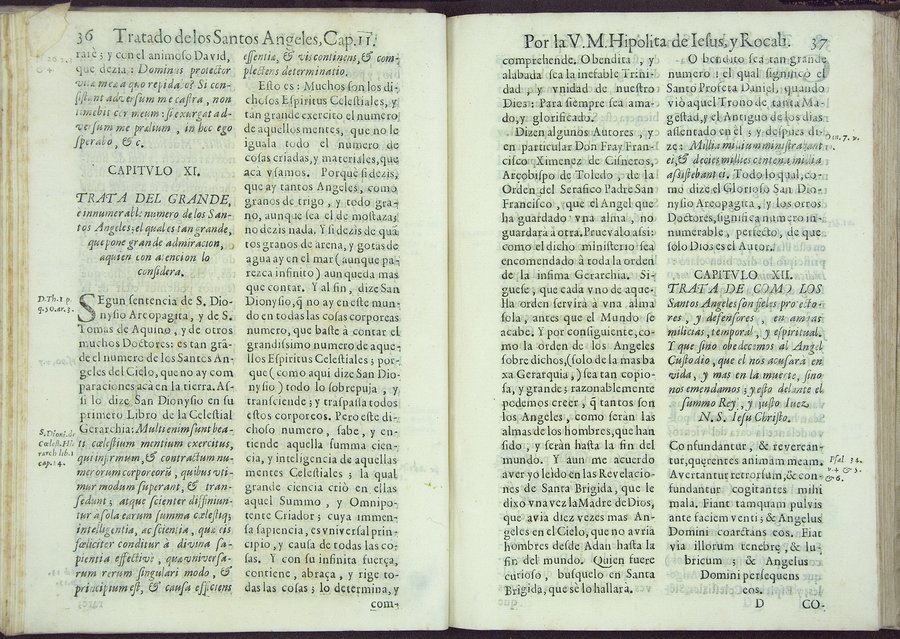 36 Tratado de los Santos Angeles, Cap. 11.
rarè; y con el animoso David,
que dezia: Dominus protector
vitæ meæ à quo trepidabo? Si con-
sistant adversum me castra, non
timebit cor meum: si exurgat ad-
versum me prælium, in hoc ego
sperabo, & c.
CAPITVLO XI.
TRATA DEL GRANDE,
e innumerable numero de los San-
tos Angeles; el qual es tan grande,
que pone grande admiracion,
a quien con atencion lo
considera.
D. Th. 1 p.
q. 50. ar. 3.
SEgun sentencia de S. Dio-
nysio Areopagita, y de S.
Tomas de Aquino, y de otros
muchos Doctores: es tan grã-
de el numero de los Santos An-
geles del Cielo, que no ay com-
paraciones acà en la tierra. As-
si lo dize San Dionysio en su
primero Libro de la Celestial
Gerarchia: Multi enim sunt bea-
S. Dioni. de
Cœlest. Hie
rarch lib. 1
cap. 14.
ti cœlestium mentium exercitus,
qui infirmum, & contractum nu-
merorum corporeorũ, quibus vti-
mur modum superant, & tran-
sedunt; atque scienter diffiniun-
tur à sola earum summa cœlestiq;
intelligentia, ac scientia, quæ eis
fœliciter conditur à divina sa-
pientia effectivè, quæ vniversa-
rum rerum singulari modo, &
principium est, & causa efficiens
essentiæ, & vis continens, & com-
plectens determinatio.
Esto es: Muchos son los di-
chosos Espiritus Celestiales, y
tan grande exercito el numero
de aquellos mentes, que no le
iguala todo el numero de
cosas criadas, y materiales, que
acà vsamos. Porque si dezis,
que ay tantos Angeles, como
granos de trigo, y todo gra-
no, aunque sea el de mostaza;
no dezis nada. Y si dezis de quã
tos granos de arena, y gotas de
agua ay en el mar (aunque pa-
rezca infinito) aun queda mas
que contar. Y al fin, dize San
Dionysio, q̃ no ay en este mun-
do en todas las cosas corporeas
numero, que baste à contar el
grandissimo numero de aque-
llos Espiritus Celestiales; por-
que (como aqui dize San Dio-
nysio) todo lo sobrepuja, y
transciende; y traspassa todos
estos corporeos. Pero este di-
choso numero, sabe, y en-
tiende aquella summa cien-
cia, y inteligencia de aquellas
mentes Celestiales; la qual
grande ciencia criò en ellas
aquel Summo, y Omnipo-
tente Criador; cuya immen-
sa sapiencia, es vniversal prin-
cipio, y causa de todas las co-
sas. Y con su infinita fuerça,
contiene, abraça, y rige to-
das las cosas; lo determina, y
com-
Por la V. M. Hipolita de Iesus, y Rocab. 37
comprehende. O bendita, y
alabada sea la inefable Trini-
dad, y vnidad de nuestro
Dios: Para siempre sea ama-
do, y glorificado.
Dizen algunos Autores, y
en particular Don Fray Fran-
cisco Ximenez de Cisneros,
Arçobispo de Toledo, de la
Orden del Serafico Padre San
Francisco, que el Angel que
ha guardado vna alma, no
guardarà otra. Pruevalo assi:
como el dicho ministerio sea
encomendado à toda la orden
de la infima Gerarchia. Si-
guese, que cada vno de aque-
lla orden servirà à vna alma
sola, antes que el Mundo se
acabe. Y por consiguiente, co-
mo la orden de los Angeles
sobre dichos, (solo de la mas ba
xa Gerarquia,) sea tan copio-
sa, y grande; razonablemente
podemos creer, q̃ tantos son
los Angeles, como seràn las
almas de los hombres, que han
sido, y seràn hasta la fin del
mundo. Y aun me acuerdo
aver yo leìdo en las Revelacio-
nes de Santa Brigida, que le
dixo vna vez la Madre de Dios,
que avia diez vezes mas An-
geles en el Cielo, que no avria
hombres desde Adan hasta la
fin del mundo. Quien fuere
curioso, busquelo en Santa
Brigida, que se lo hallara.
O bendito sea tan grande
numero: el qual significò el
Santo Profeta Daniel, quando
viò aquel Trono de tanta Ma-
gestad, y el Antiguo de los dias
assentado en el; y despues di-
Dan. 7. v.
ze: Millia millium ministrabant
ei, & decies millies centena millia
assistebant ei. Todo lo qual, co-
mo dize el Glorioso San Dio-
nysio Areopagita, y los otros
Doctores, significa numero in-
numerable, perfecto, de que
solo Dios es el Autor.
CAPITVLO XII.
TRATA DE COMO LOS
Santos Angeles son fieles protecto-
res, y defensores, en ambas
milicias, temporal, y espiritual.
Y que sino obedecemos al Angel
Custodio, que el nos acusarà en
vida, y mas en la muerte, sino
nos emendamos; y esto delante el
summo Rey, y justo Iuez
N. S. Iesu Christo.
Confundantur, & reverean-
tur, quærentes animam meam.
Psal. 34.
v. 4 & 5.
& 6.
Avertantur retrorsum, & con-
fundantur cogitantes mihi
mala. Fiant tamquam pulvis
ante faciem venti; & Angelus
Domini coarctans eos. Fiat
via illorum tenebræ, & lu-
bricum; & Angelus
Domini persequens
eos.
D CO-